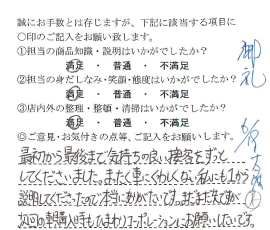 誠にお手数とは存じますが、下記に該当する項目に
〇印のご記入をお願い致します。
①担当の商品知識・説明はいかがでしたか?
満足 ・ 普通 ・ 不満足
②担当の身だしなみ・笑顔・態度はいかがでしたか?
満足 ・ 普通 ・ 不満足
③店内外の整理・整頓・清掃はいかがでしたか?
満足 ・ 普通 ・ 不満足
◎ご意見・お気付きの点等、ご記入をお願いします。
最初から最後まで気持ちの良い接客をずっと
してくださいました。また、車にくわしくない私にも1から
説明してくださったので本当にありがたいです。まだまだ先ですが
次回の車購入時もひまわりコーポレーションにお願いしたいです。
御礼